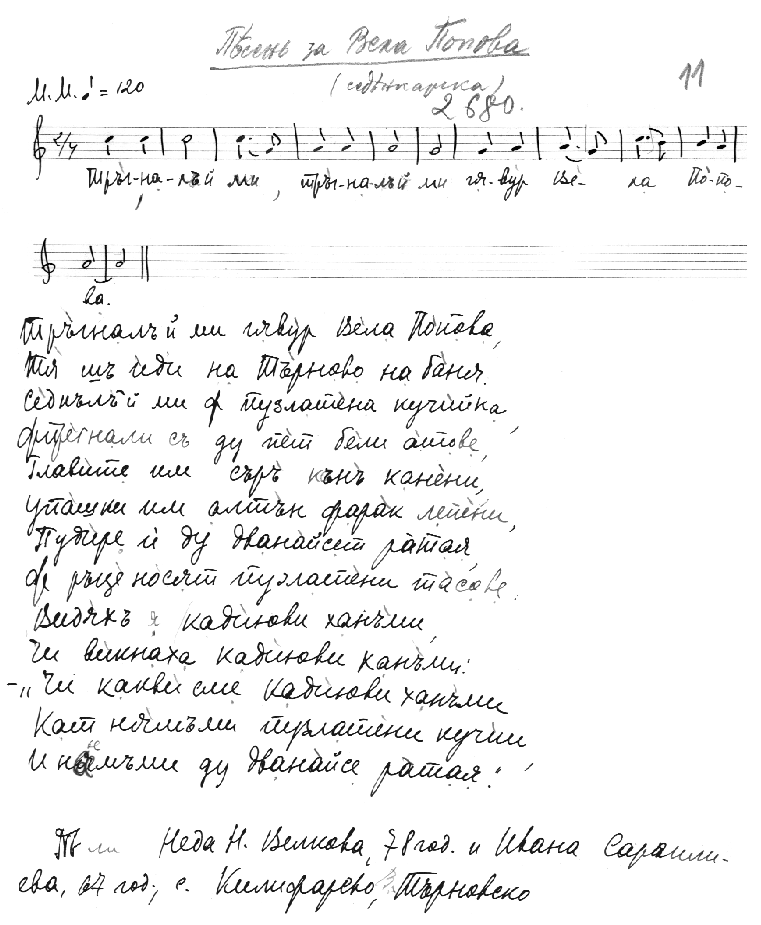 Пѣсень за Вела Попова
(седѣнкарска)
11
2680.
М.М. ♩ = 120
2/4
Тръг-на-лъй ми, тръг-на-лъй ми гявур Ве- ла По-по-
ва.
Тръгналъй ми гявур Вела Попова,
Тя шъ иди на Търново на баня.
Седнълъй ми ф пузлатена кучийка,
Фпрегнали съ ду пет бели атове,
Главите им съръ кънъ канени,
Упашки им алтън фарак лепени,
Пудире ѝ ду дванайсет ратая,
Ф ръце носят пузлатени тасове.
Видяхъ я кадинови ханъми,
Чи викнаха кадинови ханъми:
-„Чи какви сме кадинови ханъми
Кат нямъми пузлатени кучии
И нямъми ду дванайсе ратая!"
Пели Неда Н. Велкова, 78 год. и Ивана Сарайли-
ева, 67 год., с. Килифарево, Търновско